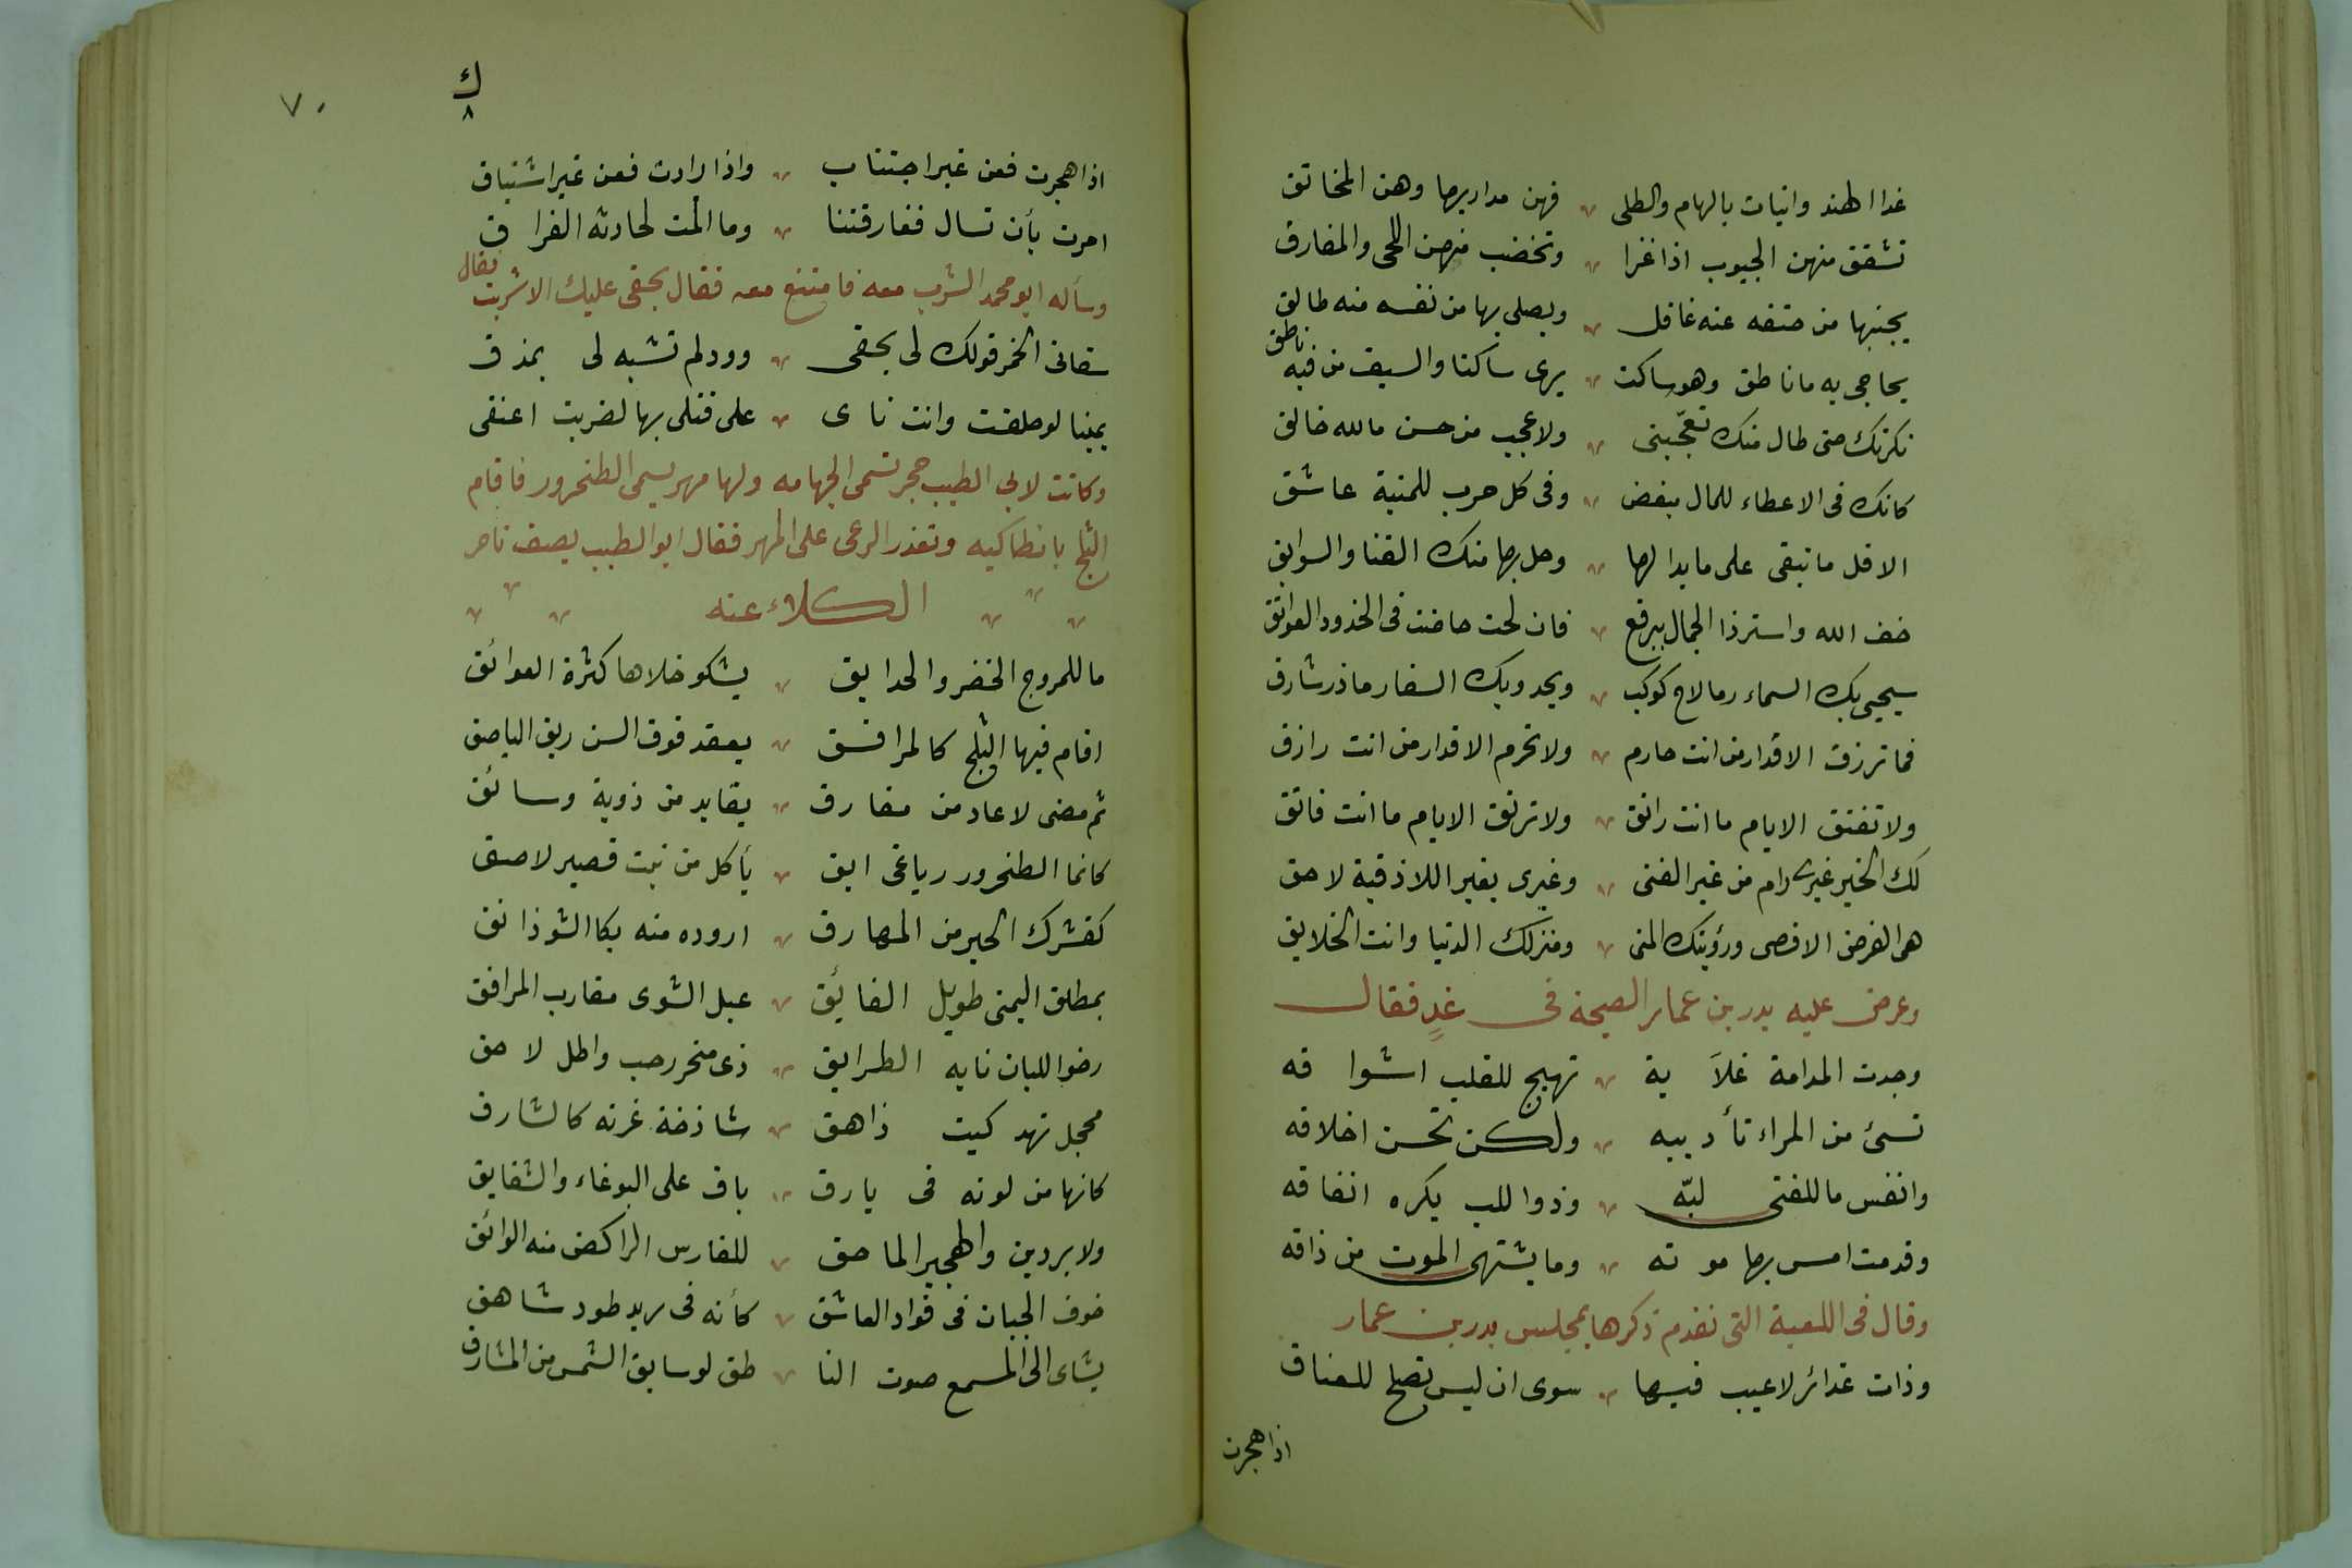 غدا الهند وانيات بالهام والطلى فهن مداريها وهن المخانق
تشقق منهن الجيوب اذا غزا وتخضب منهن اللحى والمفارق
يجنبها من حتفه عنه غافل ويصلى بها من نفسه منه طالق
يحاجى به ما ناطق وهو ساكت يرى ساكتا والسيف من فيه ناطق
نكرتك حتى طال منك تعجّبى ولا عجب من حسن ما لله خالق
كانك فى الاعطاء للمال مبغض وفى كل حرب للمنية عاشق
الا قل ما تبقى على ما بدا لها وحل بها منك القنا والسوابق
خف الله واستر ذا الجمال ببرقع فان لحت حاضت فى الخدور العواتق
سيحيى بك السمار ما لاح كوكب ويحدو بك السفار ما ذر شارق
فما ترزق الاقدار من انت حارم ولا تحرم الاقدار من انت رازق
ولا تفتق الايام ما انت راتق ولا ترتق الايام ما انت فاتق
لك الخير غيرى رام من غير الغنى وغيرى بغير اللاذقية لاحق
هى الغرض الاقصى ورؤيتك المنى ومنزلك الدنيا وانت الخلايق
وعرض عليه بدر بن عمار الصبحة فى غدٍ فقال
وجدت المدامة غلاَ بة تهيج للقلب اشوا قه
تسئ من المراء تأد يبه ولكن تحسن اخلاقه
وانفس ما للفتى لبّه وذوا للب يكره انفاقه
وقد مت امس بها مو ته وما يشتهى الموت من ذاقه
وقال فى اللعبة التى تقدم ذكرها بمجلس بدر بن عمار
وذات غدائر لا عيب فيها سوى ان ليس تصلح للعناق
اذا هجرت
ك
٨
٧٠
اذا هجرت فعن غير اجتناب واذا زارت فعن غير اشتياق
امرت بأن تسال ففارقتنا وما المت لحادثة الفراق
وسأله ابو محمد الشرب معه فامتنع معه فقال بحقى عليك الا شربت فقال
سقانى الخمر قولك لى بحقى وود لم تشبه لى بمذق
يمينا لو حلفت وانت ناى على قتلى بها لضربت اعنقى
وكانت لابى الطيب حجر تسمى الجهامه ولها مهر يسمى الطخرور فاقام
الثلج بانطاكيه وتعذر الرعى على المهر فقال ابو الطيب يصف تاخر
الكلاء عنه
ما للمروج الخضر والحدايق يشكو خلاها كثرة العوائق
اقام فيها الثلج كالمرافق يعقد فوق السن ريق الباصق
ثم مضى لا عاد من مفارق بقايد من ذوبة وسائق
كانما الطخرور رباغى ابق يأكل من نبت قصير لاصق
كقشرك الحبر من المهارق اروده منه بكا الشوذانق
بمطلق اليمنى طويل الفائق عبل الشوى مقارب المرافق
رضو اللبان نايه الطرايق ذى منخر رحب واطل لاحق
محجل نهد كميت ذاهق شاذخة غرته كالشارق
كانها من لونه فى بارق باق على البوغاء والشقايق
ولا بردين والهجير الماحق للفارس الراكض منه الواثق
خوف الجبان فى فواد العاشق كأنه فى ريد طود شاهق
يشاى الى المسمع صوت النا طق لو سابق الشمس من المشارق